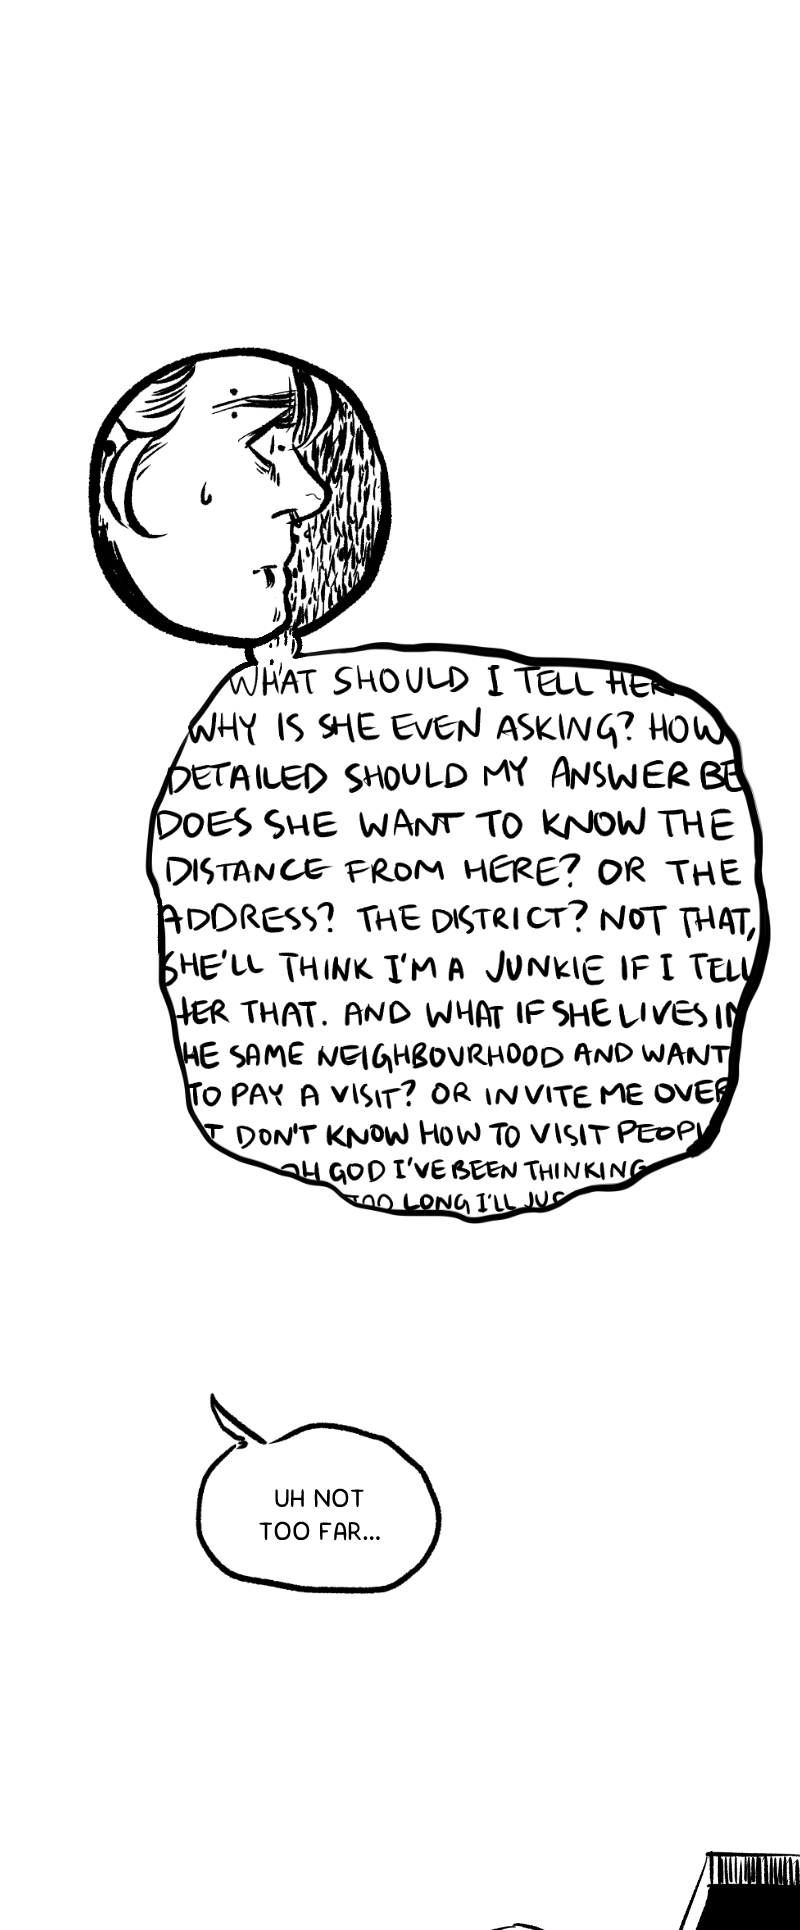 WHAT SHOULD I TELL HER
WHY IS SHE EVEN ASKING? HOW
DETAILED SHOULD MY ANSWER BE
DOES SHE WANT TO KNOW THE
DISTANCE FROM HERE? OR THE
ADDRESS? THE DISTRICT? NOT THAT,
SHE'LL THINK I'M A JUNKIE IF I TELL
HER THAT. AND WHAT IF SHE LIVES IN
HE SAME NEIGHBOURHOOD AND WANT
TO PAY A VISIT? OR INVITE ME OVER
I DON'T KNOW HOW TO VISIT PEOPL
OH GOD I'VE BEEN THINKING
TOO LONG I'LL JUS
UH NOT
TOO FAR...